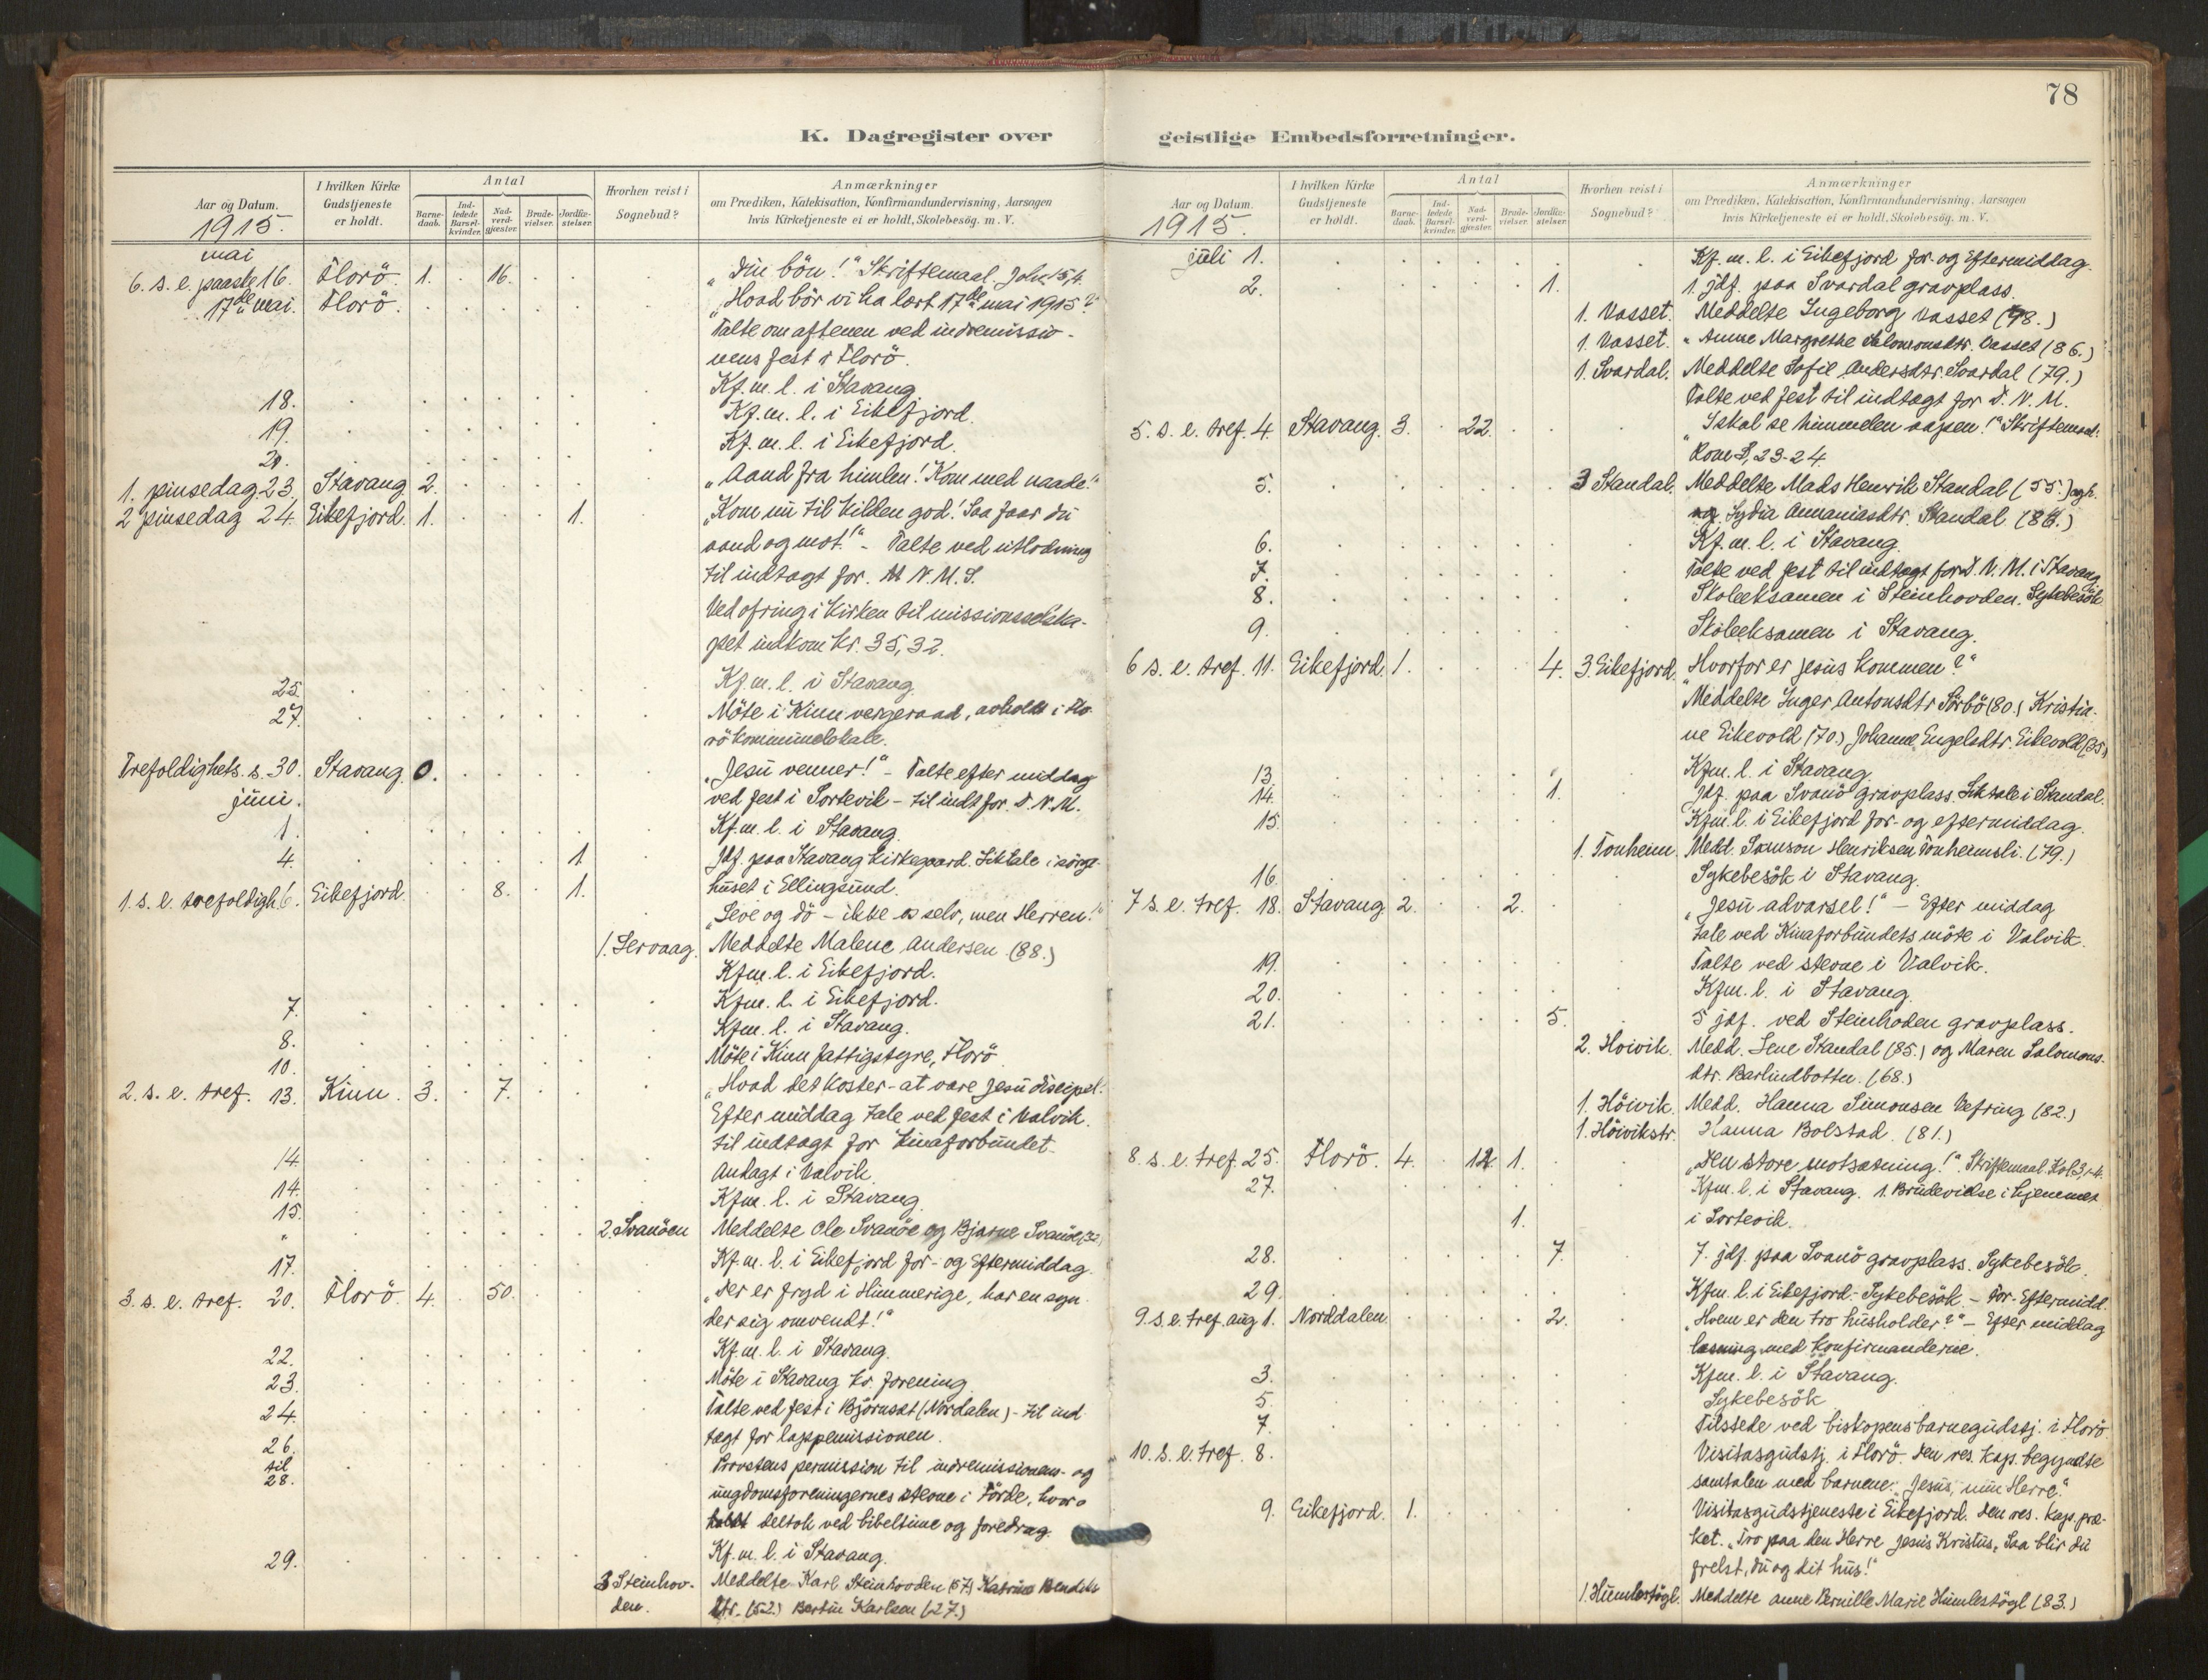 78
K. Dagregister over
geistlige Embedsforretninger.
Aar og Datum.
1915.
I hvilken Kirke Gudstjeneste er holdt.
Antal
Barne-daab.
Ind-ledede Barsel-kvinder.
Nad-verd-gjæster.
Brude-vielser.
Jordfæ-stelser.
Hvorhen reist i Sognebud?
Anmærkninger
om Prædiken, Katekisation, Konfirmandundervisning, Aarsagen
hvis Kirketjeneste ei er holdt, Skolebesög. m. V.
mai
6. s. e. paaske 16. Florö. 1. 16. „Din bön!" Skriftemaal. Joh. 15,4.
17de mai. Florö. „Hvad bör vi ha lært 17de mai 1915?"
Talte om aftenen ved indremissio-
nens fest i Florö.
Kf. m. l. i Stavang
18. Kf. m. l. i Eikefjord.
19. Kf. m. l. i Eikefjord.
1. pinsedag 23. Stavang 2. „Aand fra himlen! Kom med naade!"
2 pinsedag 24. Eikefjord. 1. 1. „Kom nu til kilden god! Saa faar du
aand og mot!" - Talte ved utlodning
til indtagt for N. M. S.
Ved ofring i kirken til missionsselska-
pet indkom kr. 35,32.
25. Kf. m. l. i Stavang.
27. Möte i Kinn vergeraad, avholdt i Flo-
rö kommunelokale.
Trefoldighets. s. 30. Stavang. 0. „Jesu venner!" - Talte efter middag
juni. ved fest i Sortevik - til indt for D. N. M.
1. Kf. m. l. i Stavang.
4. 1 Jdf. paa Stavang kirkegaard. Liktale i sörge-
huset i Ellingsund.
1. s. e. trefoldigh 6. Eikefjord 8. 1. „Leve og dö - ikke os selv, men Herren!"
1. Servaag. Meddelte Malene Andersen (88.)
Kfm. l. i Eikefjord.
7. Kfm. l. i Eikefjord.
8. Kfm. l. i Stavang.
10. Möte i Kinn fattigstyre, Florö
2. s. e. tref. 13. Kinn. 3. 7. „Hvad det koster - at være Jesu discipel."
Efter middag tale ved fest i Valvik.
til indtagt for Kinaforbundet.
14. Andagt i Valvik
14. Kfm. l. i Stavang
15.
" 2. Svanöen Meddelte Ole Svanöe og Bjarne Svanöe (32)
17. Kf. m. l. i Eikefjord for- og Eftermiddag.
3. s. e. tref. 20. Florö. 4. 50. „Der er fryd i Himmerige, har en syn-
der sig omvendt!"
22. Kf. m. l. i Stavang.
23. Möte i Stavang kr. forening
24. Talte ved fest i Björnset (Nordalen) - til ind-
tægt for lappemissionen.
26. til 28. Provstens permission til indremissionens- og
ungdomsforeningernes stevne i Förde, hvor
deltok ved bibeltime og foredrag.
29. Kf. m. l. i Stavang.
3 Steinhov-
den. Meddelte Karl Steinhovden (57) Katrine Bendiks
dtr. (52.) Bertin Karlsen (27.)
Aar og Datum.
1915.
I hvilken Kirke Gudstjeneste er holdt.
Antal
Barne-daab.
Ind-ledede Barsel-kvinder.
Nad-verd-gjæster.
Brude-vielser.
Jordfæ-stelser.
Hvorhen reist i Sognebud?
Anmærkninger
om Prædiken, Katekisation, Konfirmandundervisning, Aarsagen
hvis Kirketjeneste ei er holdt, Skolebesög. m. V.
juli 1. Kf. m. l. i Eikefjord for- og Eftermiddag.
2. 1. 1. jdf. paa Svardal gravplass.
1. Vasset. Meddelte Ingeborg Vasset (78.)
1. Vasset. " Anne Margrethe Salomonsdtr. Vasset (86.)
1. Svardal. Meddelte Sofie Andersdtr. Svardal (79.)
Talte ved fest til indtægt for D. N. M.
5. s. e. tref. 4. Stavang. 3. 22. „I skal se himmelen aapen!" Skriftemaal:
Rom 3, 23-24.
5. 3 Standal. Meddelte Mads Henrik Standal (55.)
og Lydia Annaniasdtr. Standal
6. Kf. m. l. i Stavang.
7. Talte ved fest til indtægt for D. N. M. i Stavang
8. Skoleeksamen i Steinhovden. Sykebesök
9. Skoleeksamen i Stavang.
6 s. e. tref. 11. Eikefjord. 1. 4. 3. Eikefjord. „Hvorfor er Jesus kommen?"
Meddelte Inger Antonsdtr Sörbö (80.) Kristia-
ne Eikevold (70.) Johanne Engelsdtr. Eikevold (85.)
13. Kfm. l. i Stavang.
14. 1. Jdf. paa Svanö gravplass. Liktale i Standal.
15. Kfm. l. i Eikefjord for- og eftermiddag.
1. Tonheim. Medd. Samson Henriksen Tonheimsli. (79.)
16. Sykebesök i Stavang.
7 s. e. tref. 18. Stavang 2. 2. „Jesu advarsel!" - Efter middag
tale ved Kinaforbundets möte i Valvik.
19. Talte ved stevne i Valvik.
20. Kfm. l. i Stavang.
21. 5. 5 jdf. ved Steinhoden gravplass.
2. Hoivik. Medd. Lene Standal (85.) og Maren Salomons-
dtr. Barlindbotten. (68.)
1. Höivik. Medd. Hanna Simonsen Vefring (82.)
1. Höivikstr. Hanna Bolstad. (81.)
8. s. e. tref. 25. Florö. 4. 12 1. „Den store motsætning!" Skriftemaal. Kol 3,1-4.
27. Kfm. l. i Stavang. 1. Brudevielse i hjemmet
1. i Sortevik.
28. 7. 7. jdf. paa Svanö gravplass. Sykebesök.
29. Kfm. l. i Eikefjord - Sykebesök - For- Eftermidd.
9. s. e. tref. aug 1. Norddalen. 2. „Hvem er den tro husholder?" - Efter middag
læsning med konfirmanderne.
3. Kfm. l. i Stavang.
5. Sykebesök
7. Tilstede ved biskopens barnegudstj. i Florö
10. s. e. tref. 8. Visitasgudstj. i Florö. Den res. kap. begyndte
samtalen med barnene: „Jesus, min Herre."
9. Eikefjord. 1. Visitasgudstjeneste i Eikefjord. Den res. kap. præ-
ket. „Tro paa den Herre Jesus Kristus, Saa blir du
frelst, du og dit hus!"
1. Humlestögl. Meddelte Anne Pernille Marie Humlestögl (83.)